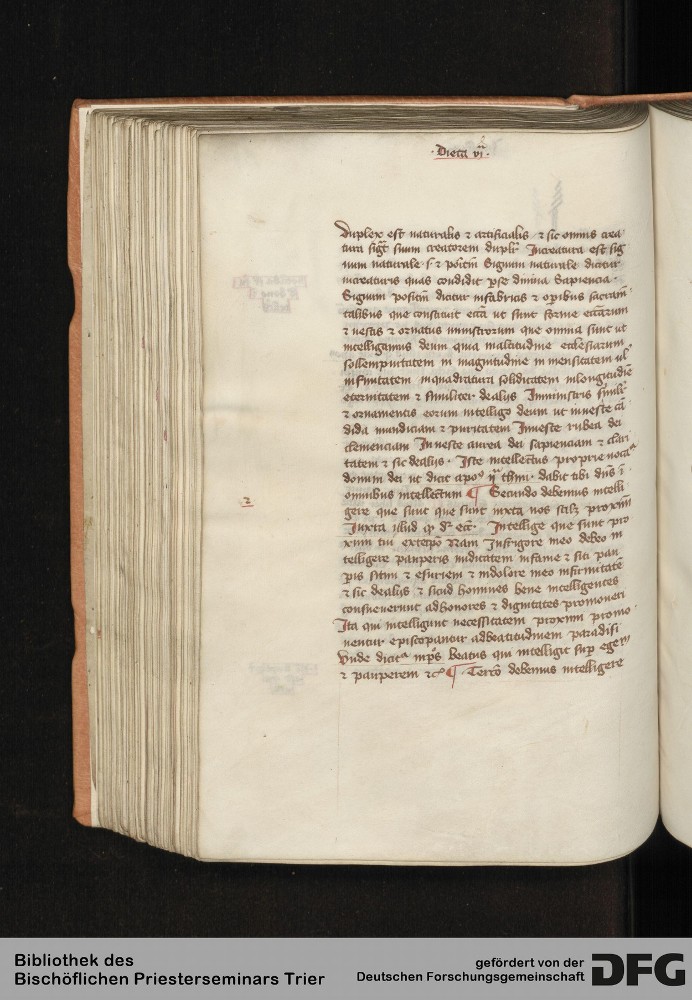 · Dieta vi ·
duplex est naturalis ⁊ artificialis ⁊ sic omnis crea
tura sigt suum creatorem duplr Increatura est sig
num naturale s ⁊ poitm Signum naturale dicitur
increaturis quas condidit pse diuina Sapiencia
Signum positm dicitur infabricis ⁊ opibus sacram
talibus que constituit ecca ut sunt forme eccarum
⁊ uestis ⁊ ornatus ministrorum que omnia sunt ut
intelligamus deum quia multitudine ecclesiarum
sollempnitatem in magnitudine in mensitatem ul
infinitatem inquadratura soliditatem inlongitudie
eternitatem ⁊ similiter dealijs Inministris simlr
⁊ ornamentis eorum intelligo deum ut inueste cā
dida mundiciam ⁊ puritatem Inueste rubea dei
clemenciam In ueste aurea dei sapienciam ⁊ clari
tatem ⁊ sic dealijs · Iste intellectus proprie uocat
donum dei ut dicit apo⁹ ij thimi · dabit tibi dns i
omnibus intellectum ¶ Secundo debemus intelli
2
gere que sunt que sunt iuxta nos scilz proximi
Iuxta illud qd dr ecc · Intellige que sunt pro
ximi tui extepo Nam Infrigore meo debeo in
telligere pauperis nuditatem infame ⁊ siti pau
pis sitim ⁊ esuriem ⁊ indolore meo infirmitatē
⁊ sic dealijs ⁊ sicud homines bene intelligentes
consueuerunt adhonores ⁊ dignitates promoueri
Ita qui intelligunt necessitatem proximi promo
uentur episcopantur adbeatitudinem paradisi
Vnde dicit mps Beatus qui intelligit sup egenū
⁊ pauperem ⁊c ¶ Tercō debemus intelligere
Bibliothek des
Bischöflichen Priesterseminars Trier
gefördert von der
Deutschen Forschungsgemeinschaft
DFG